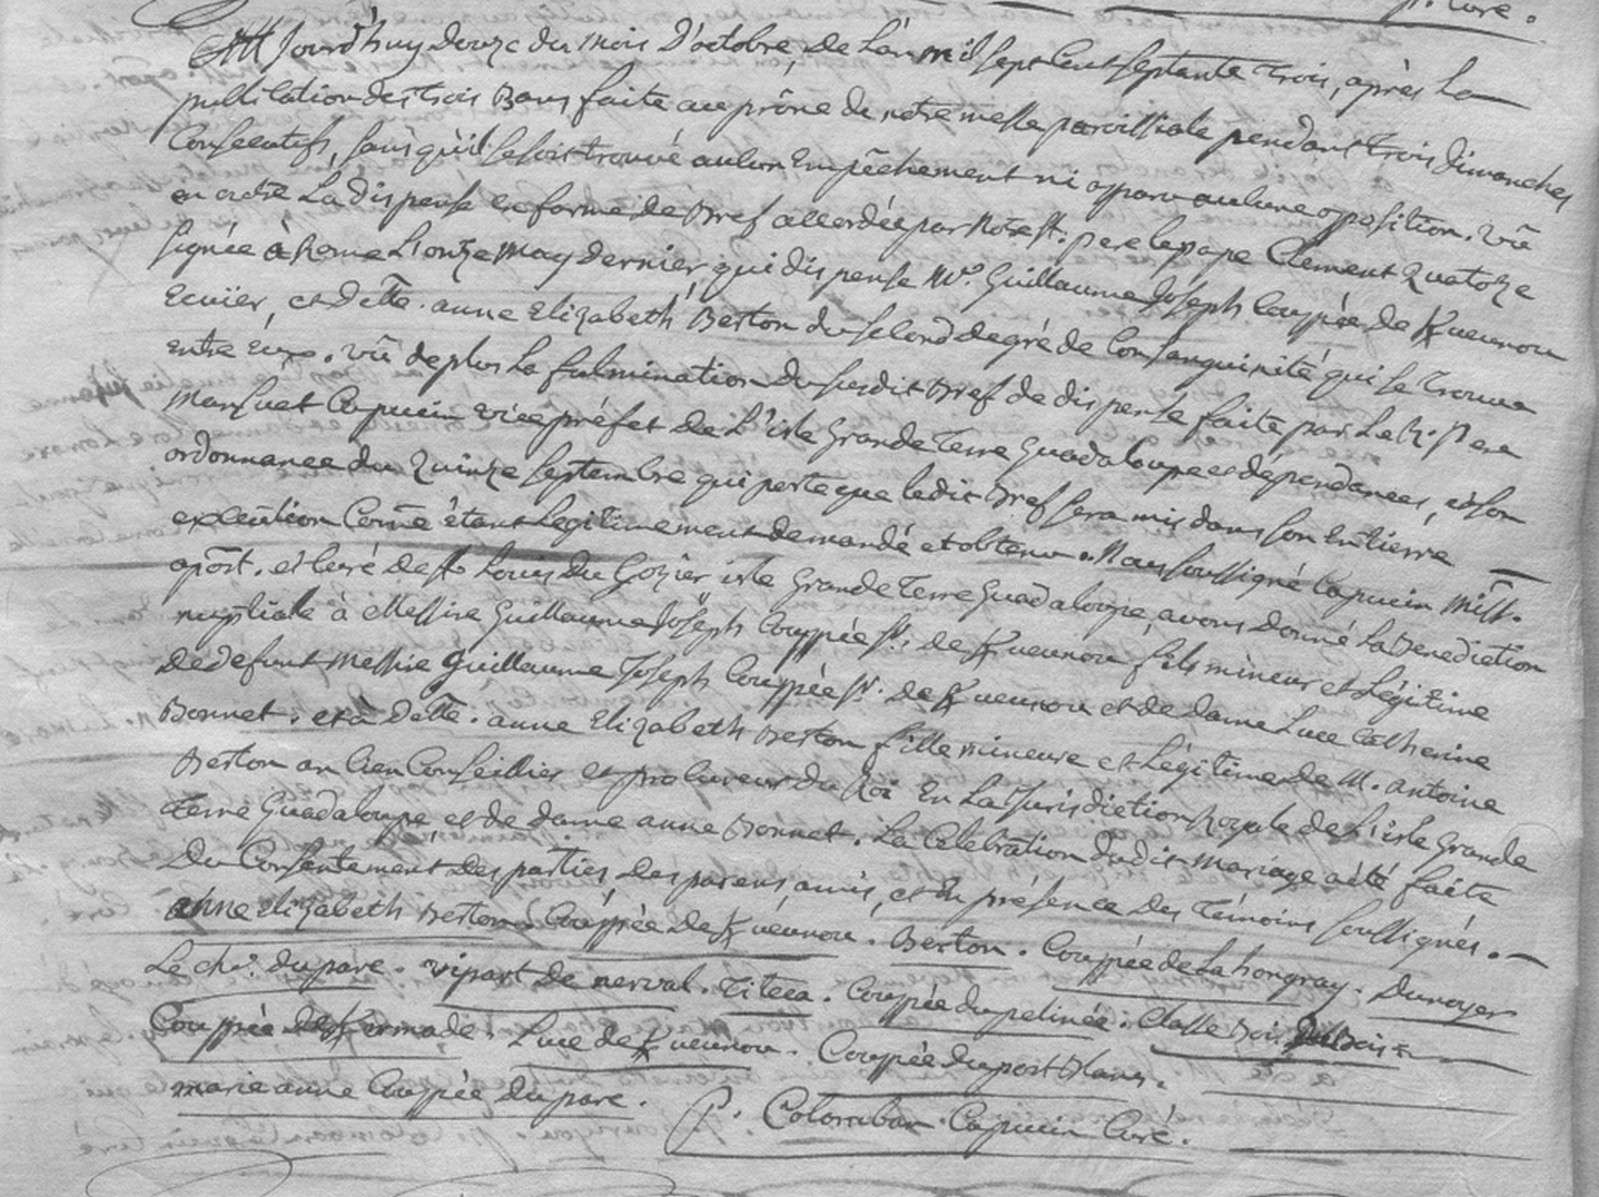 p. Curé.
Aujourd'huy douze du mois d'octobre, de L'an mil sept Cent septante trois, après La
publication des trois Bans faite au prône de notre messe paroissiale pendant trois dimanches
Consecutifs, sans qu'il se soit trouvé aucun Empêchement ni aparu aucune oposition. vû
en outre La dispense en forme de Bref accordée par Notre St. pere le pape Clement Quatorze
signée à Rome L'onze May dernier, qui dispense Mr. Guillaume Joseph Couppée de Kueunou
Ecuïer, et Delle. anne Elizabeth Berton du second degré de Consanguinité qui se trouve
entre Eux. vû de plus La fulmination du susdit Bref de dispense faite par Le R. Pere
Mansuet Capucin vice préfet de L'isle Grande Terre Guadaloupe et dépendances, et son
ordonnance du Quinze septembre qui porte que ledit Bref sera mis dans son Entierre
execution Come étant Legitimement demandé et obtenu. Nous soussigné Capucin Miss.
apost. et Curé de St. Louis Du Gozier isle Grande Terre Guadaloupe, avons Donné La Benediction
nuptiale à Messire Guillaume Joseph Couppée Sr. de Kueunou fils mineur et Légitime
de defunt Messire Guillaume Joseph Couppée Sr. de Kueunou et de dame Luce Catherine
Bonnet. et à Delle. anne Elizabeth Berton fille mineure et Légitime de M. antoine
Berton ancien Conseillier et procureur du Roi En La Jurisdiction Royale de L'isle Grande
Terre Guadaloupe et de dame anne Bonnet. La Celebration dudit mariage a été faite
Du Consentement des parties, des parens, amis, et En présence des Témoins soussignés.
anne Elizabeth Berton. Couppée de Kueunou. Berton. Couppée de Lahongray. Dunoyer
Le cher. duparc. vipart de nerval. Titeca. Couppée du pelinée. Classe Bois Dubois
Couppée de Kermade. Luce de Kueunou. Couppée du port Blanc.
marie anne Couppée Duparc. P. Colomban Capucin Curé.